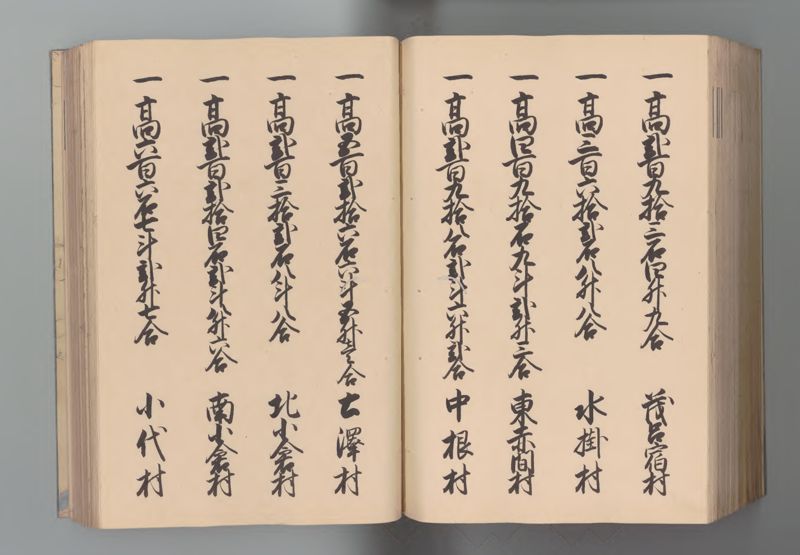 一 高弐百九拾三石四升九合 茂呂宿村
一 高三百六拾弐石八升八合 水掛村
一 高四百九拾石九斗弐升三合 東赤間村
一 高弐百九拾八石弐斗六升弐合 中根村
一 高五百弐拾六石六斗五升三合 大澤村
一 高弐百三拾弐石八斗八合 北小倉村
一 高弐百弐拾四石弐斗八升六合 南小倉村
一 高六百六石七斗弐升七合 小代村